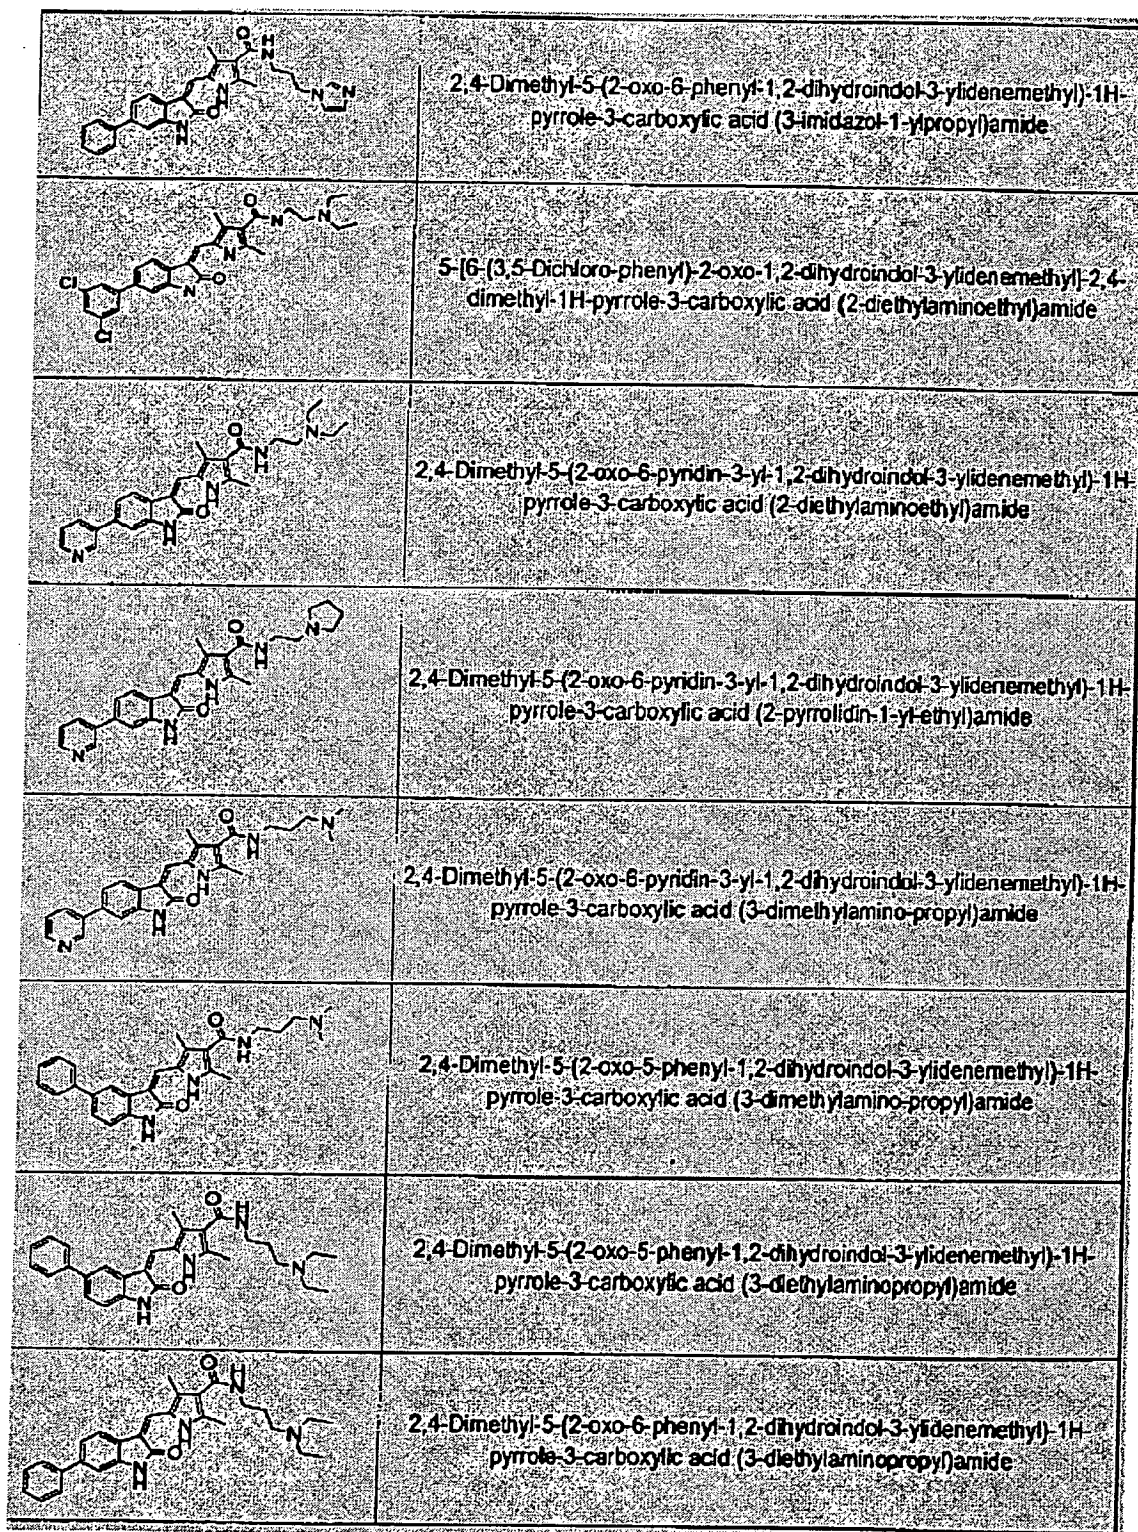 2,4-Dimethyl-5-(2-oxo-6-phenyl-1,2-dihydroindol-3-ylidenemethyl)-1H-
pyrrole-3-carboxylic acid (3-imidazol-1-ylpropyl)amide
5-[6-(3,5-Dichloro-phenyl)-2-oxo-1,2-dihydroindol-3-ylidenemethyl]-2,4-
dimethyl-1H-pyrrole-3-carboxylic acid (2-diethylaminoethyl)amide
2,4-Dimethyl-5-(2-oxo-6-pyridin-3-yl-1,2-dihydroindol-3-ylidenemethyl)-1H-
pyrrole-3-carboxylic acid (2-diethylaminoethyl)amide
2,4-Dimethyl-5-(2-oxo-6-pyridin-3-yl-1,2-dihydroindol-3-ylidenemethyl)-1H-
pyrrole-3-carboxylic acid (2-pyrrolidin-1-yl-ethyl)amide
2,4-Dimethyl-5-(2-oxo-6-pyridin-3-yl-1,2-dihydroindol-3-ylidenemethyl)-1H-
pyrrole-3-carboxylic acid (3-dimethylamino-propyl)amide
2,4-Dimethyl-5-(2-oxo-5-phenyl-1,2-dihydroindol-3-ylidenemethyl)-1H-
pyrrole-3-carboxylic acid (3-dimethylamino-propyl)amide
2,4-Dimethyl-5-(2-oxo-5-phenyl-1,2-dihydroindol-3-ylidenemethyl)-1H-
pyrrole-3-carboxylic acid (3-diethylaminopropyl)amide
2,4-Dimethyl-5-(2-oxo-6-phenyl-1,2-dihydroindol-3-ylidenemethyl)-1H
pyrrole-3-carboxylic acid (3-diethylaminopropyl)amide